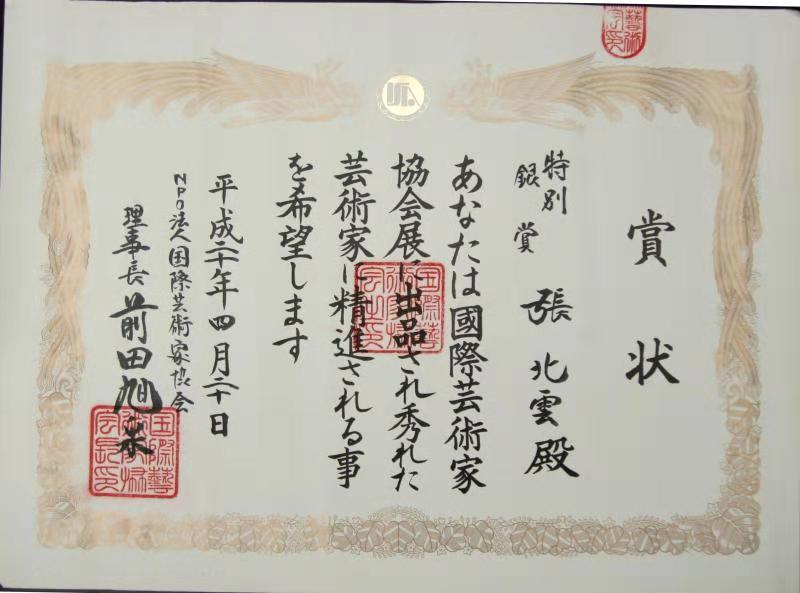 賞状
特別
銀賞
張北雲殿
あなたは國際芸術家
協会展に出品され秀れた
芸術家に精進される事
を希望します
平成二十年四月二十日
NPO法人国際芸術家協会
理事長 前田旭